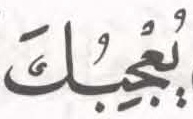 يُعْجِبُكَ